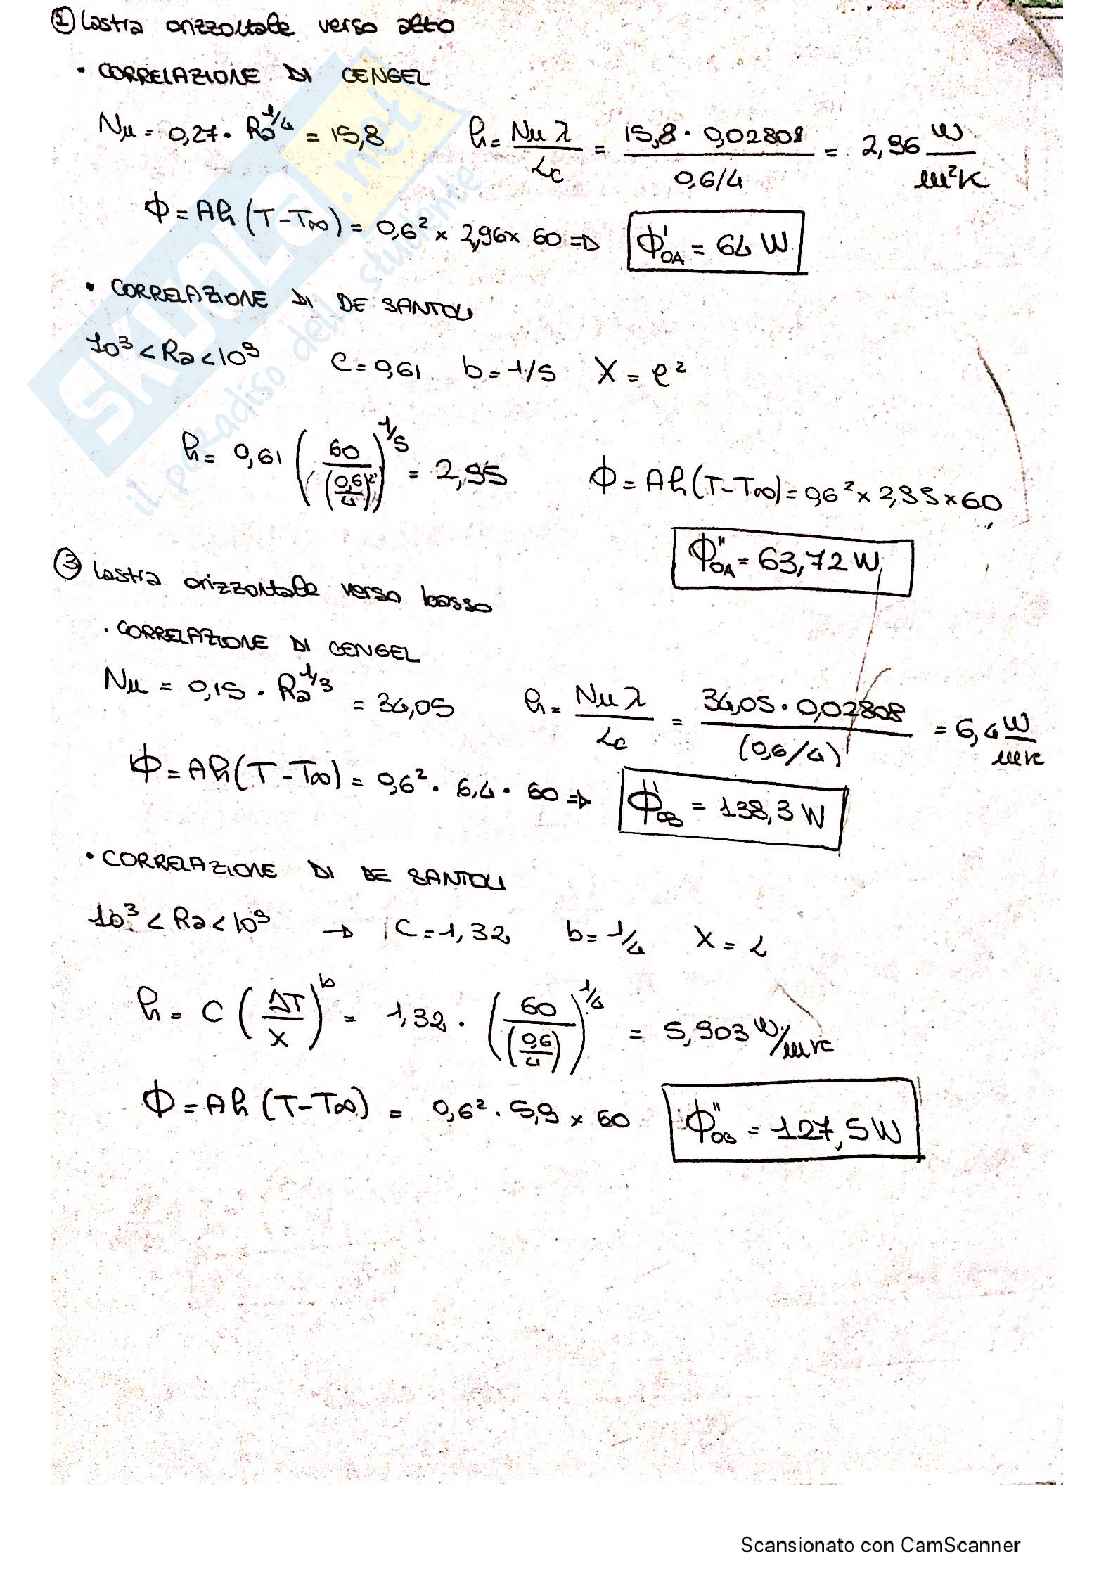 ① Lastra orizzontale verso alto
• CORRELAZIONE DI CENGEL
Nu = 0,27 · Ra^1/4 = 15,8   h = Nu λ / Lc = 15,8 · 0,02808 / 0,6/4 = 2,96 W/m²K
Φ = Ah (T-T∞) = 0,6² × 2,96 × 60 ⇒ Φ'OA = 64 W
• CORRELAZIONE DI DE SANTOLI
10³ < Ra < 10⁹   C = 0,61   b = 1/5   X = l²
h = 0,61 (60 / (0,6/4)²)^1/5 = 2,95   Φ = Ah (T-T∞) = 0,6² × 2,95 × 60
Φ''OA = 63,72 W
③ Lastra orizzontale verso basso
• CORRELAZIONE DI CENGEL
Nu = 0,15 · Ra^1/3 = 34,05   h = Nu λ / Lc = 34,05 · 0,02808 / (0,6/4) = 6,4 W/m²K
Φ = Ah (T-T∞) = 0,6² · 6,4 · 60 ⇒ Φ'OB = 138,3 W
• CORRELAZIONE DI DE SANTOLI
10³ < Ra < 10⁹ → C = 1,32   b = 1/4   X = L
h = C (ΔT / X)^b = 1,32 · (60 / (0,6/4))^1/4 = 5,903 W/m²K
Φ = Ah (T-T∞) = 0,6² · 5,9 × 60   Φ''OB = 127,5 W
SKUOLA.net
il paradiso dello studente
Scansionato con CamScanner